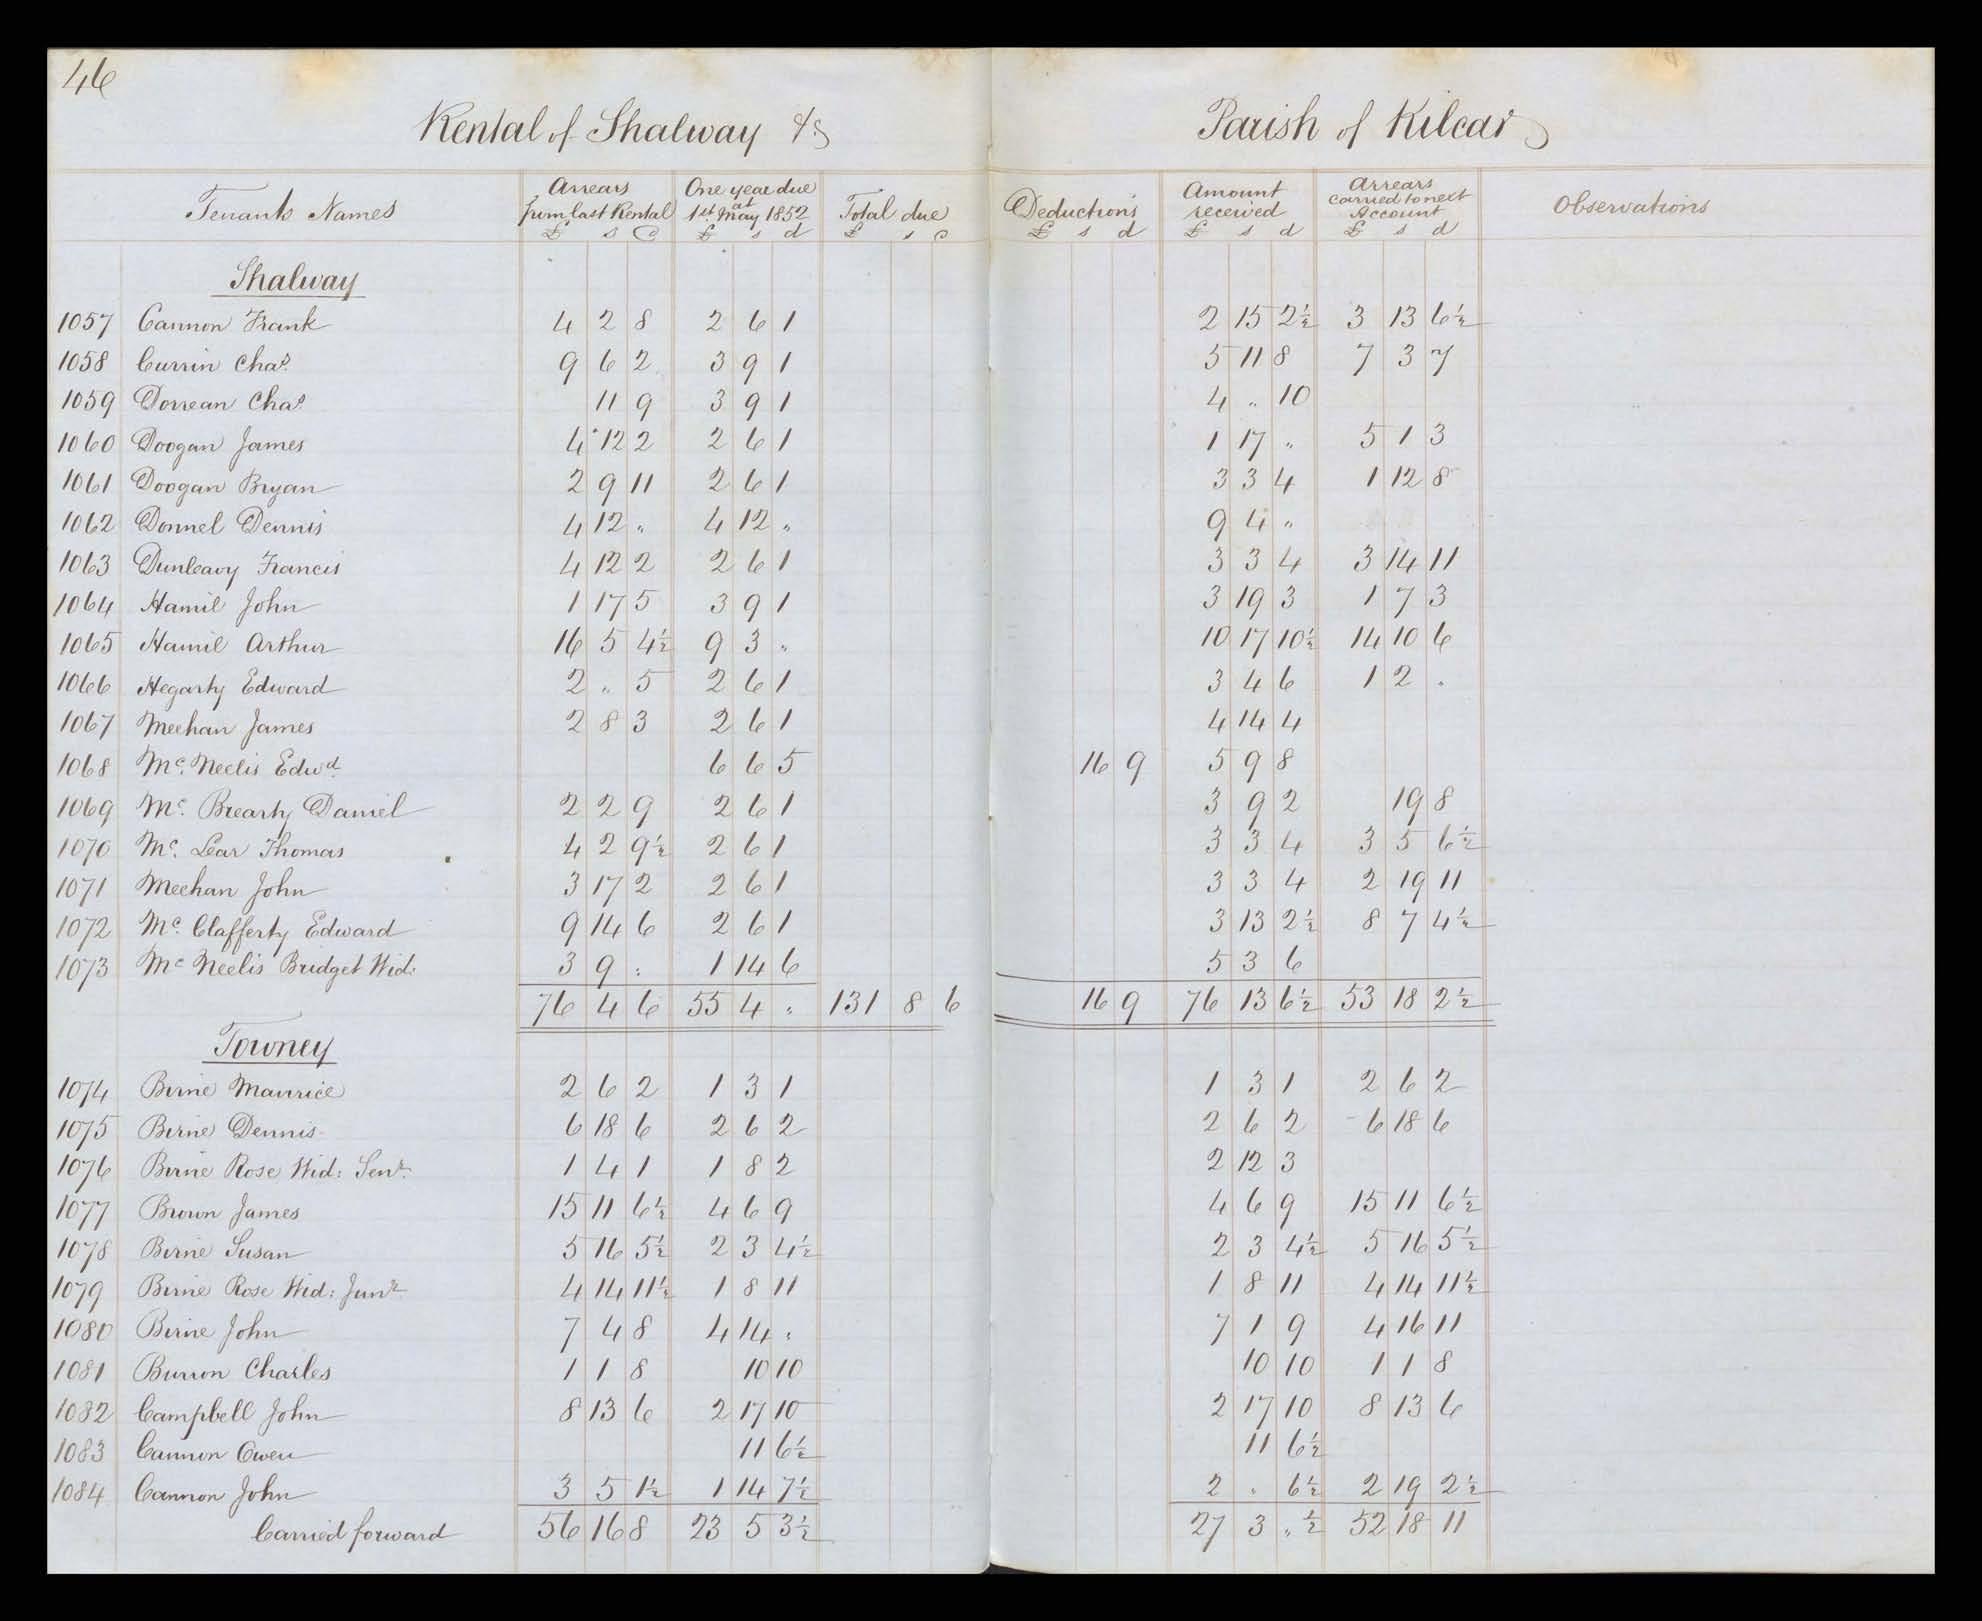 46
Rental of Shalway &c Parish of Kilcar
Tenants Names Arrears from last Rental £ s d One year due at 1st May 1852 £ s d Total due £ s d Deductions £ s d Amount received £ s d Arrears carried to next Account £ s d Observations
Shalway
1057 Cannon Frank 4 2 8 2 6 1 2 15 2½ 3 13 6½
1058 Currin Chas. 9 6 2 3 9 1 5 11 8 7 3 7
1059 Dorrean Chas. 11 9 3 9 1 4 „ 10
1060 Doogan James 4 12 2 2 6 1 1 17 „ 5 1 3
1061 Doogan Bryan 2 9 11 2 6 1 3 3 4 1 12 8
1062 Donnel Dennis 4 12 „ 4 12 „ 9 4 „
1063 Dunleavy Francis 4 12 2 2 6 1 3 3 4 3 14 11
1064 Hamil John 1 17 5 3 9 1 3 19 3 1 7 3
1065 Hamil Arthur 16 5 4½ 9 3 „ 10 17 10½ 14 10 6
1066 Hegarty Edward 2 „ 5 2 6 1 3 4 6 1 2 „
1067 Meehan James 2 8 3 2 6 1 4 14 4
1068 Mc. Neelis Edwd. 6 6 5 16 9 5 9 8
1069 Mc. Brearty Daniel 2 2 9 2 6 1 3 9 2 19 8
1070 Mc. Lear Thomas 4 2 9½ 2 6 1 3 3 4 3 5 6½
1071 Meehan John 3 17 2 2 6 1 3 3 4 2 19 11
1072 Mc. Clafferty Edward 9 14 6 2 6 1 3 13 2½ 8 7 4½
1073 Mc Neelis Bridget Wid: 3 9 „ 1 14 6 5 3 6
76 4 6 55 4 „ 131 8 6 16 9 76 13 6½ 53 18 2½
Towney
1074 Birne Maurice 2 6 2 1 3 1 1 3 1 2 6 2
1075 Birne Dennis 6 18 6 2 6 2 2 6 2 6 18 6
1076 Birne Rose Wid: Senr. 1 4 1 1 8 2 2 12 3
1077 Brown James 15 11 6½ 4 6 9 4 6 9 15 11 6½
1078 Birne Susan 5 16 5½ 2 3 4½ 2 3 4½ 5 16 5½
1079 Birne Rose Wid: Junr. 4 14 11½ 1 8 11 1 8 11 4 14 11½
1080 Birne John 7 4 8 4 14 „ 7 1 9 4 16 11
1081 Burron Charles 1 1 8 10 10 10 10 1 1 8
1082 Campbell John 8 13 6 2 17 10 2 17 10 8 13 6
1083 Cannon Owen 11 6½ 11 6½
1084 Cannon John 3 5 1½ 1 14 7½ 2 „ 6½ 2 19 2½
Carried forward 56 16 8 23 5 3½ 27 3 „½ 52 18 11